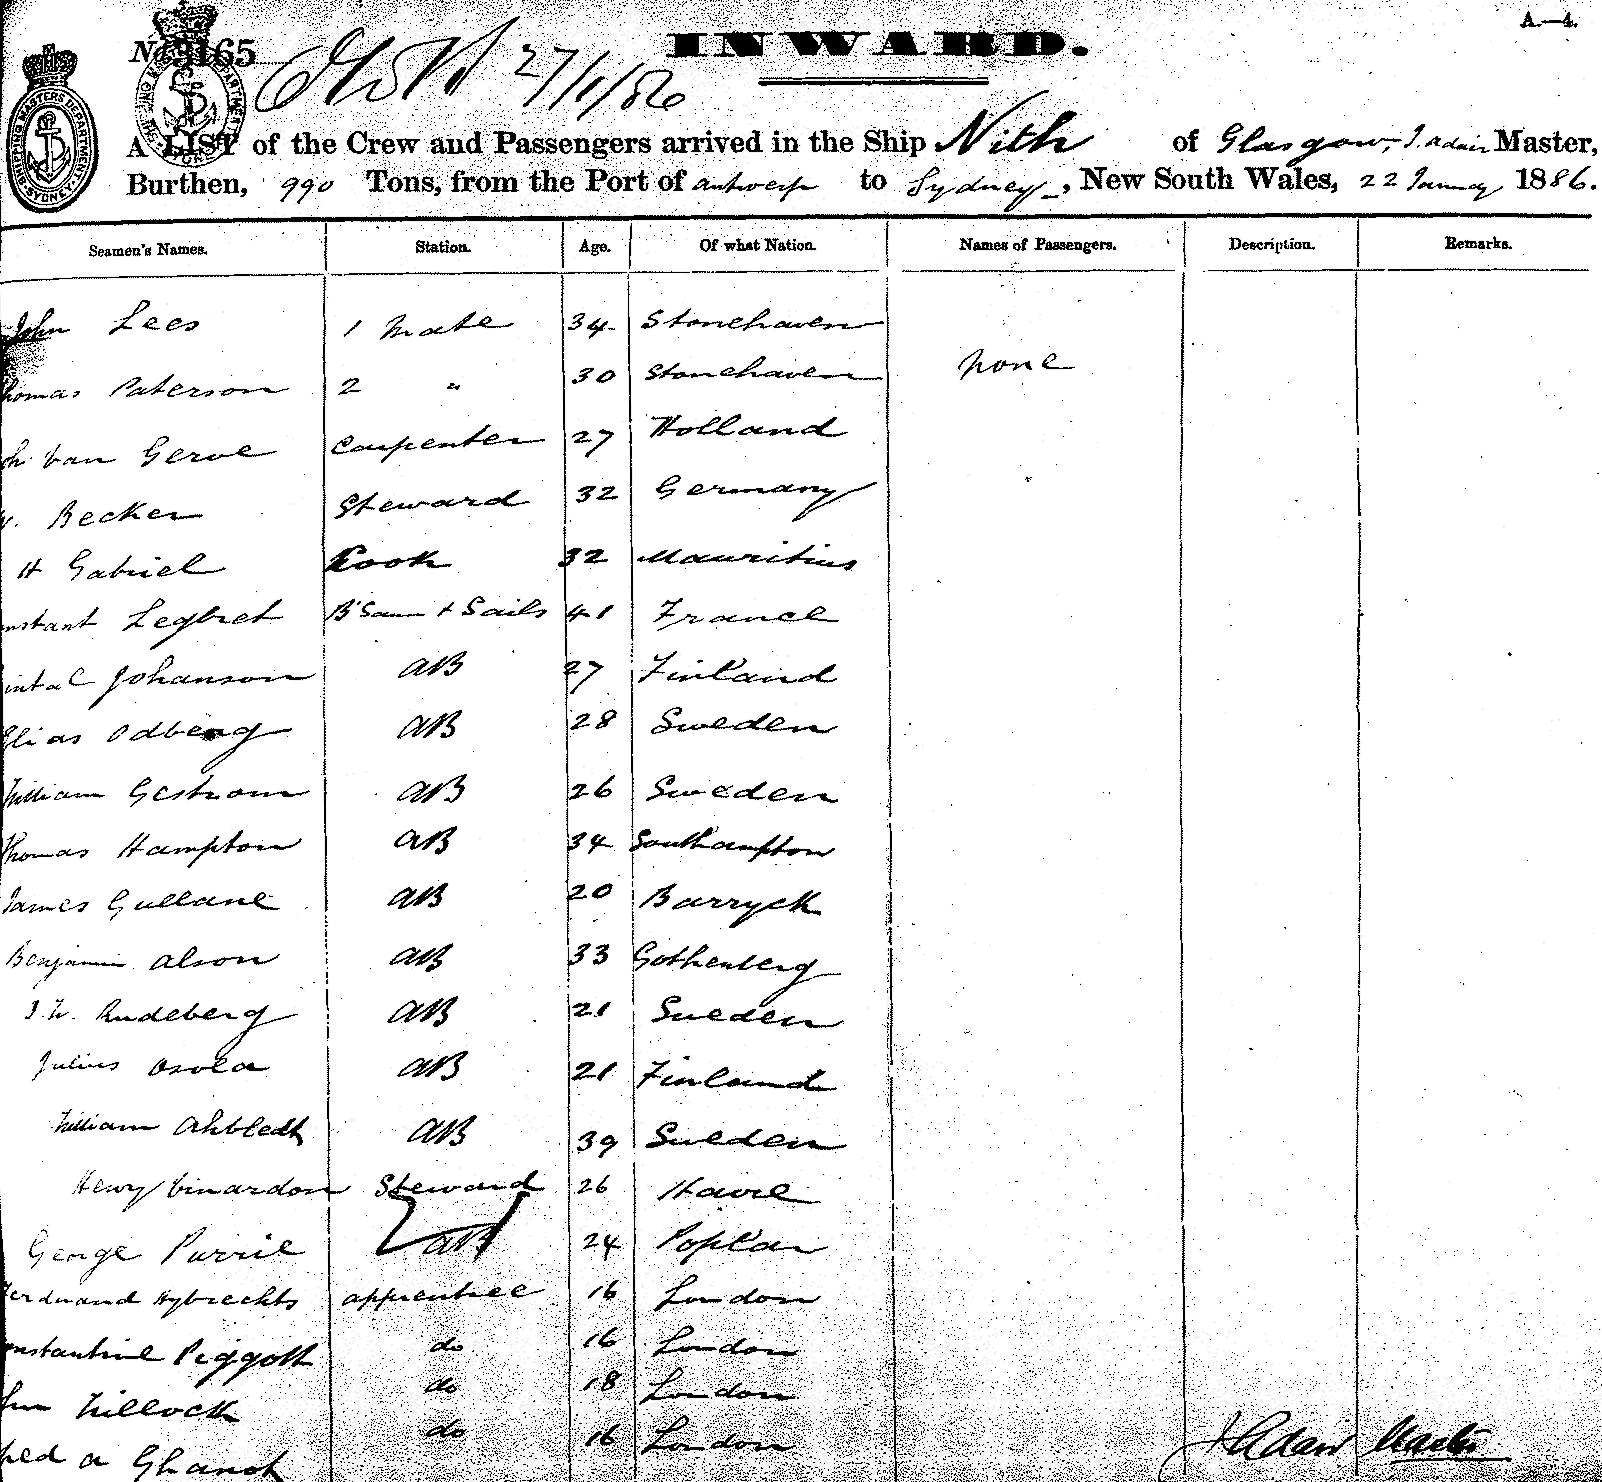 A.—4.
No 3165
27/1/86
INWARD.
A LIST of the Crew and Passengers arrived in the Ship Nith of Glasgow, J. Adair Master,
Burthen, 990 Tons, from the Port of Antwerp to Sydney, New South Wales, 22 January 1886.
Seamen's Names. Station. Age. Of what Nation. Names of Passengers. Description. Remarks.
John Lees 1 Mate 34 Stonehaven
homas Paterson 2 " 30 Stonehaven none
van Gerve Carpenter 27 Holland
Becker Steward 32 Germany
H Gabriel Cook 32 Mauritius
nstant Legbret B'San + Sails 41 France
Johanson AB 27 Finland
Elias Odberg AB 28 Sweden
William Gestrom AB 26 Sweden
Thomas Hampton AB 34 Southampton
James Gullane AB 20 Barryck
Benjamin Alson AB 33 Gothenberg
Rudeberg AB 21 Sweden
Julius Osola AB 21 Finland
William Ahbledt AB 39 Sweden
Henry Vinardon Steward 26 Havre
George Purrie AB 24 Poplar
Ferdinand Hybrechts apprentice 16 London
onstantine Piggott do 16 London
Tillock do 18 London
a Ghanot do 16 London
J Adair Master